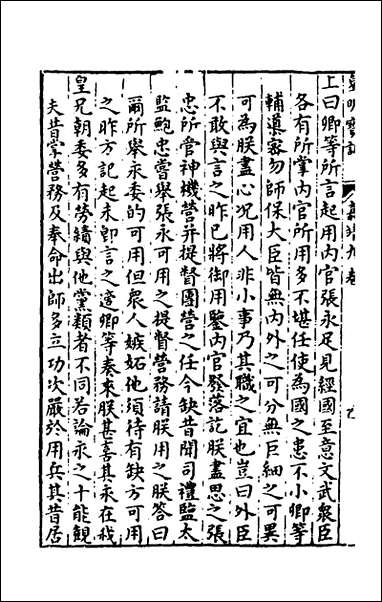 皇明寶訓
嘉靖九卷
上曰卿等所言起用內官張永足見經國至意文武衆臣
各有所掌內官所用多不堪任使為國之患不小卿等
輔導密勿師保大臣皆無內外之可分無巨細之可異
可為朕盡心況用人非小事乃其職之宜也豈曰外臣
不敢與言之昨已將御用監內官發落訖朕盡思之張
忠所管神機營并提督團營之任今缺昔聞司禮監太
監鮑忠嘗舉張永可用之提督營務請朕用之朕答曰
爾所舉永委的可用但衆人嫉妬他須待有缺方可用
之昨方記起未即言之適卿等奏來朕甚喜其永在我
皇兄朝委多有勞績與他黨類者不同若論永之才能觀
夫昔掌營務及奉命出師多立功次嚴於用兵其昔居